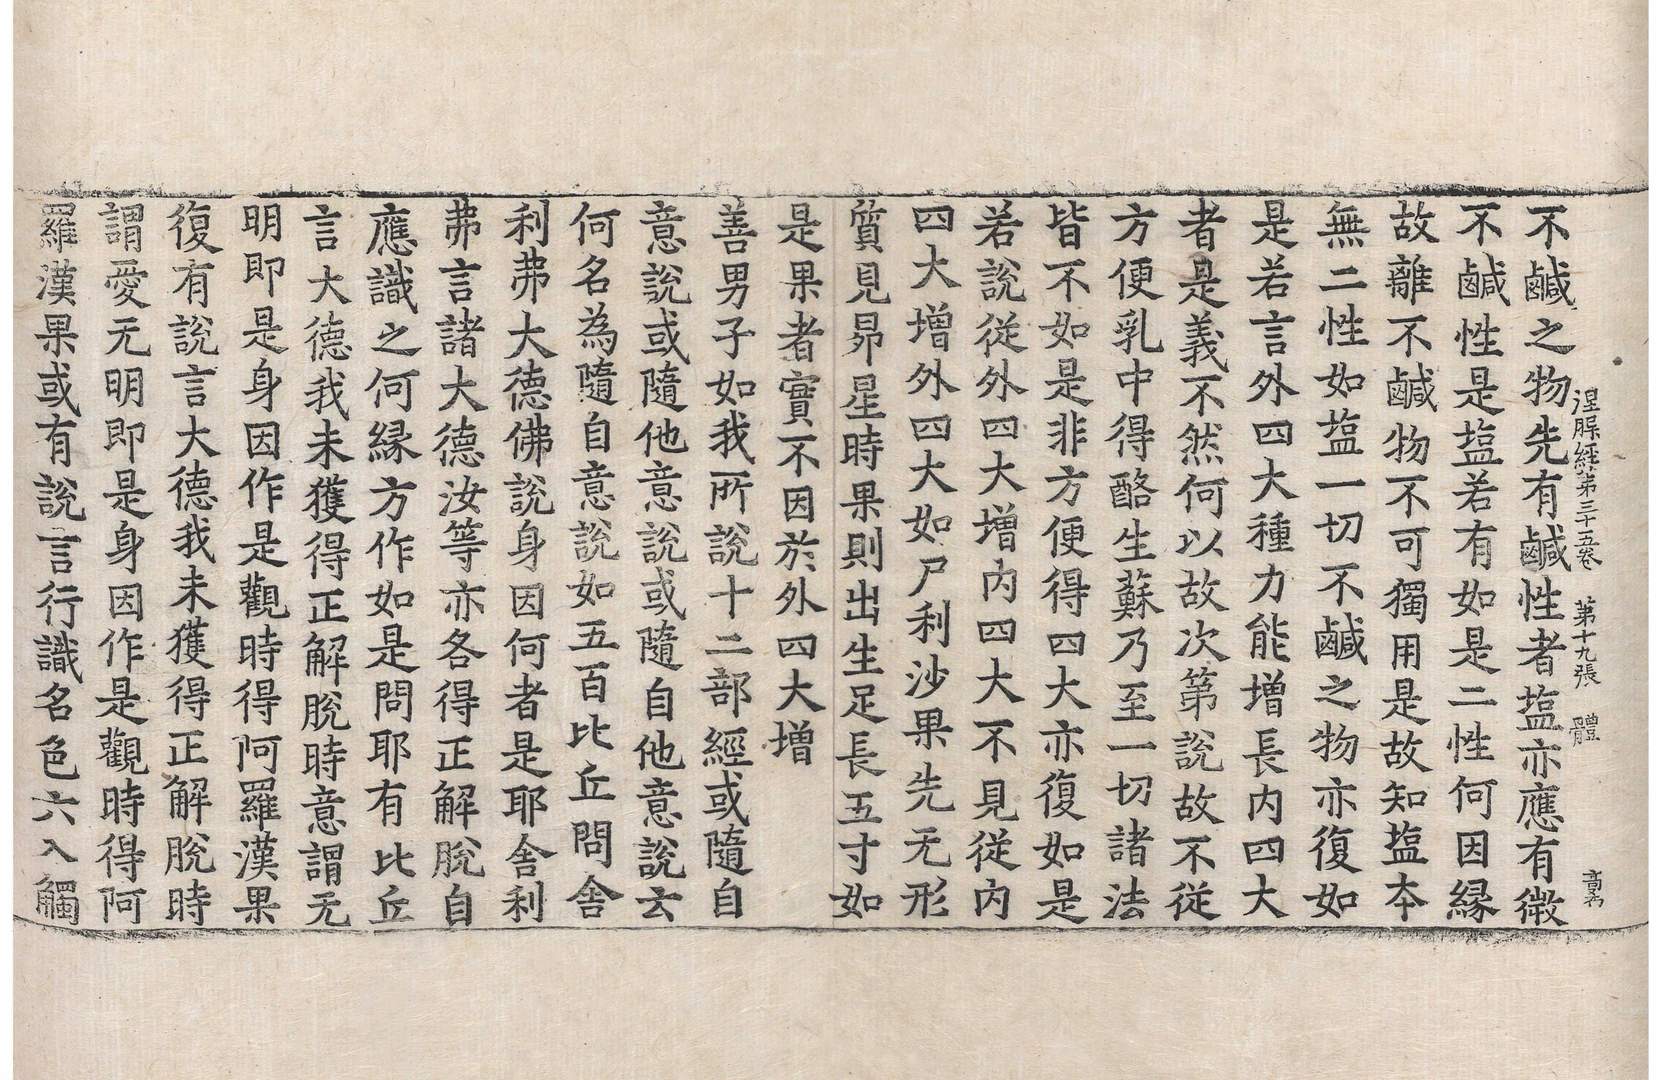 涅槃經第三十五卷 第十九張 體
不鹹之物先有鹹性者塩亦應有微
不鹹性是塩若有如是二性何因縁
故離不鹹物不可獨用是故知塩本
無二性如塩一切不鹹之物亦復如
是若言外四大種力能增長内四大
者是義不然何以故次第說故不從
方便乳中得酪生蘇乃至一切諸法
皆不如是非方便得四大亦復如是
若說從外四大增内四大不見從内
四大增外四大如尸利沙果先无形
質見昴星時果則出生足長五寸如
是果者實不因於外四大增
善男子如我所說十二部經或隨自
意說或隨他意說或隨自他意說云
何名為隨自意說如五百比丘問舍
利弗大德佛說身因何者是耶舍利
弗言諸大德汝等亦各得正解脫自
應識之何縁方作如是問耶有比丘
言大德我未獲得正解脫時意謂无
明即是身因作是觀時得阿羅漢果
復有說言大德我未獲得正解脫時
謂愛无明即是身因作是觀時得阿
羅漢果或有說言行識名色六入觸